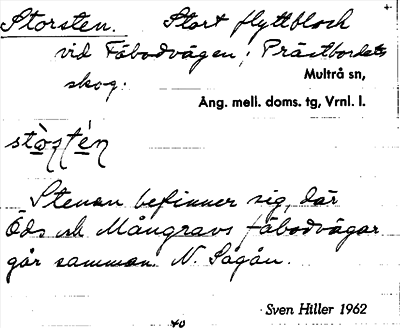 Storsten. Stort flyttblock
vid Fäbodvägen i Prästbordets
skog.
Multrå sn,
Ång. mell. doms. tg, Vrnl. l.
Stenen befinner sig, där
Öds och Mångravs fäbodvägar
går samman N. Sågån.
Sven Hiller 1962
40